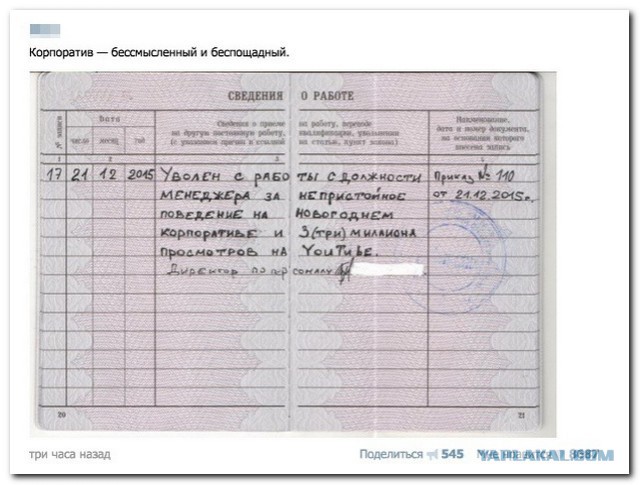 Корпоратив — бессмысленный и беспощадный.
СВЕДЕНИЯ О РАБОТЕ
№ записи
Дата
число месяц год
Сведения о приеме на работу, переводе
на другую постоянную работу, квалификации, увольнении
(с указанием причин и ссылкой на статью, пункт закона)
Наименование,
дата и номер документа,
на основании которого
внесена запись
1 2 3 4
17 21 12 2015 УВОЛЕН С РАБОТЫ С ДОЛЖНОСТИ Приказ № 110
МЕНЕДЖЕРА ЗА НЕПРИСТОЙНОЕ от 21.12.2015г.
ПОВЕДЕНИЕ НА НОВОГОДНЕМ
КОРПОРАТИВЕ И 3(ТРИ) МИЛИАНА
ПРОСМОТРОВ НА YOUTUBE.
Директор по персоналу
20 21
три часа назад
Поделиться 545
YAPLAKAL.COM